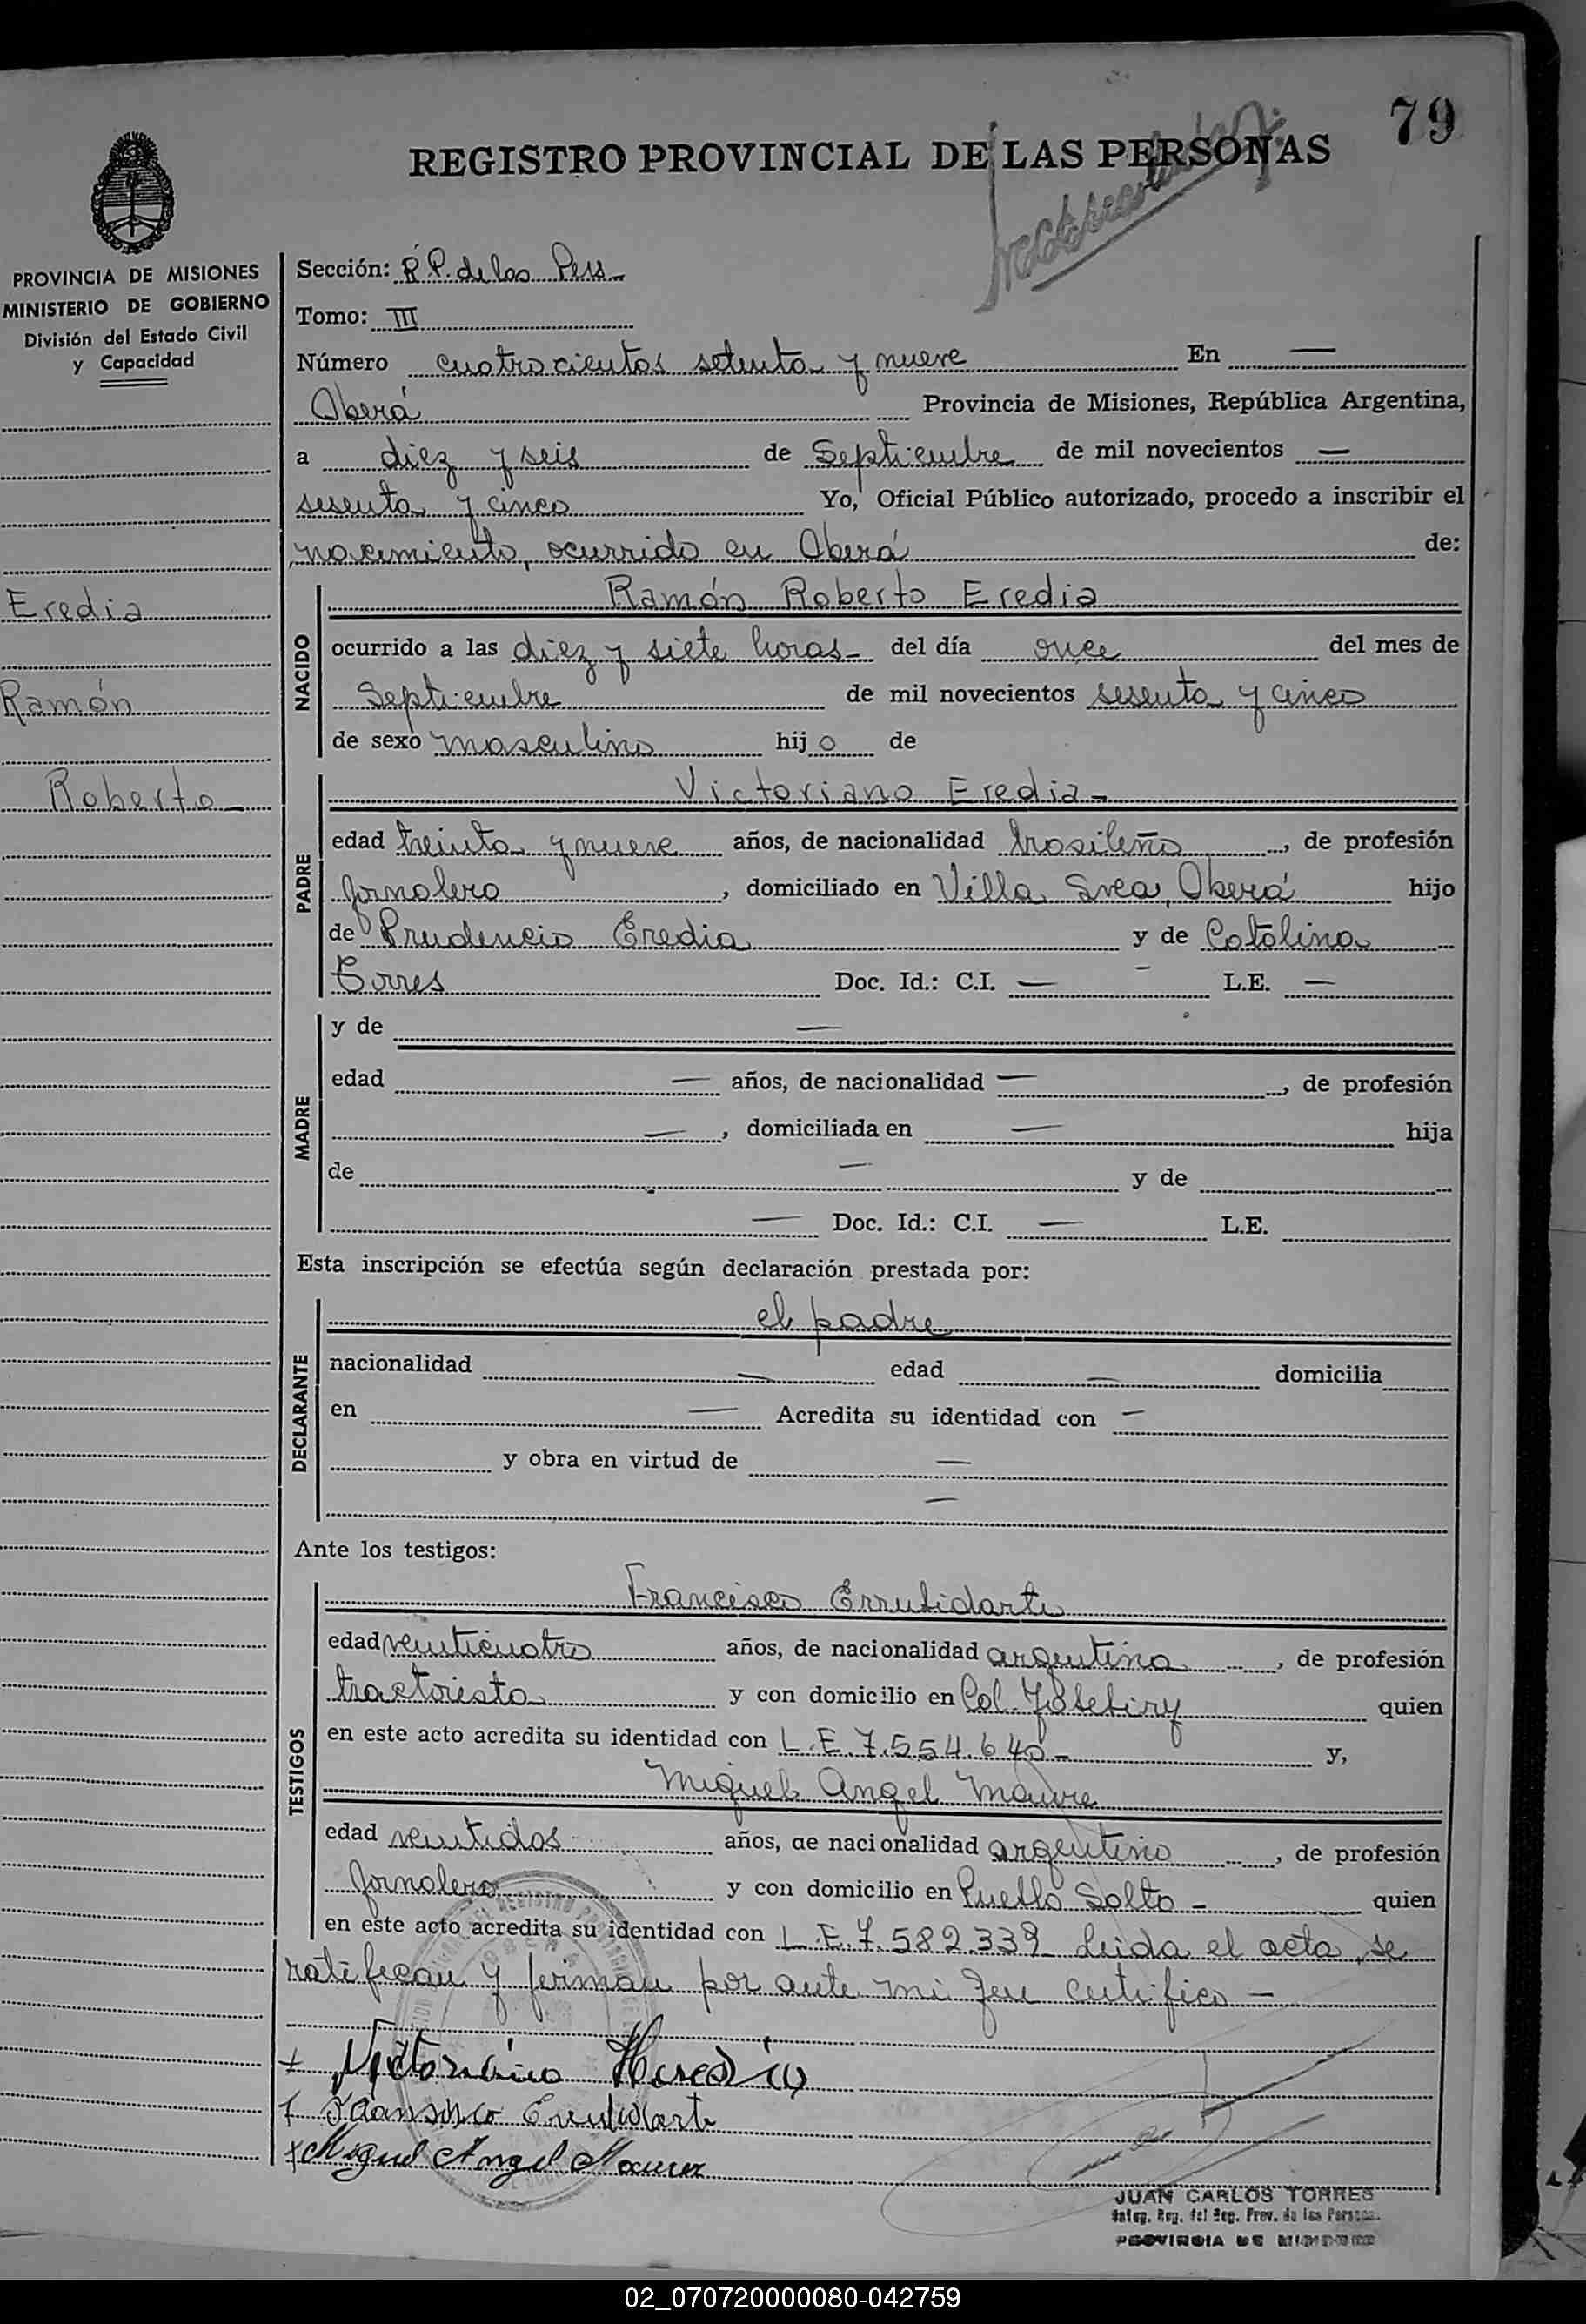 79
REGISTRO PROVINCIAL DE LAS PERSONAS
PROVINCIA DE MISIONES
MINISTERIO DE GOBIERNO
División del Estado Civil
y Capacidad
Eredia
Ramón
Roberto
Sección: R.P. de las Pers
Tomo: III
Número cuatrocientos setenta y nueve En —
Oberá Provincia de Misiones, República Argentina,
a diez y seis de Septiembre de mil novecientos —
sesenta y cinco Yo, Oficial Público autorizado, procedo a inscribir el
nacimiento, ocurrido en Oberá de:
NACIDO
Ramón Roberto Eredia
ocurrido a las diez y siete horas- del día once del mes de
Septiembre de mil novecientos sesenta y cinco
de sexo masculino hijo de
PADRE
Victoriano Eredia-
edad treinta y nueve años, de nacionalidad brasileño, de profesión
Jornalero, domiciliado en Villa Svea, Oberá hijo
de Prudencio Eredia y de Catalina
Torres Doc. Id.: C.I. — - L.E. —
MADRE
y de —
edad — años, de nacionalidad —, de profesión
—, domiciliada en — hija
de — y de
— Doc. Id.: C.I. — L.E.
Esta inscripción se efectúa según declaración prestada por:
DECLARANTE
el padre
nacionalidad — edad — domicilia
en — Acredita su identidad con —
y obra en virtud de —
—
Ante los testigos:
TESTIGOS
Francisco Errubidarte
edad veinticuatro años, de nacionalidad argentina, de profesión
tractorista y con domicilio en Col. Yabebiry quien
en este acto acredita su identidad con L.E.7.554.640- y,
Miguel Angel Maure
edad veintidos años, de nacionalidad argentino, de profesión
Jornalero y con domicilio en Puello Salto - quien
en este acto acredita su identidad con L.E.7.582.339 Leida el acta, se
ratifican y firman por ante mi que certifico —
x Victoriano Heredia
x Fransisco Errubidarte
x Miguel Angel Maurer
JUAN CARLOS TORRES
Deleg. Reg. del Reg. Prov. de las Personas
PROVINCIA DE MISIONES
02_070720000080-042759